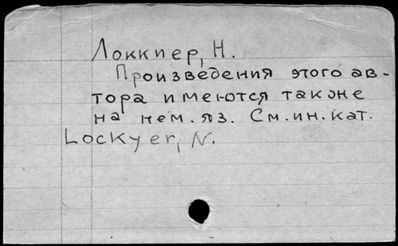 Локкиер, Н.
Произведения этого ав-
тора имеются также
на нем. яз. См. ин. кат.
Lockyer, N.